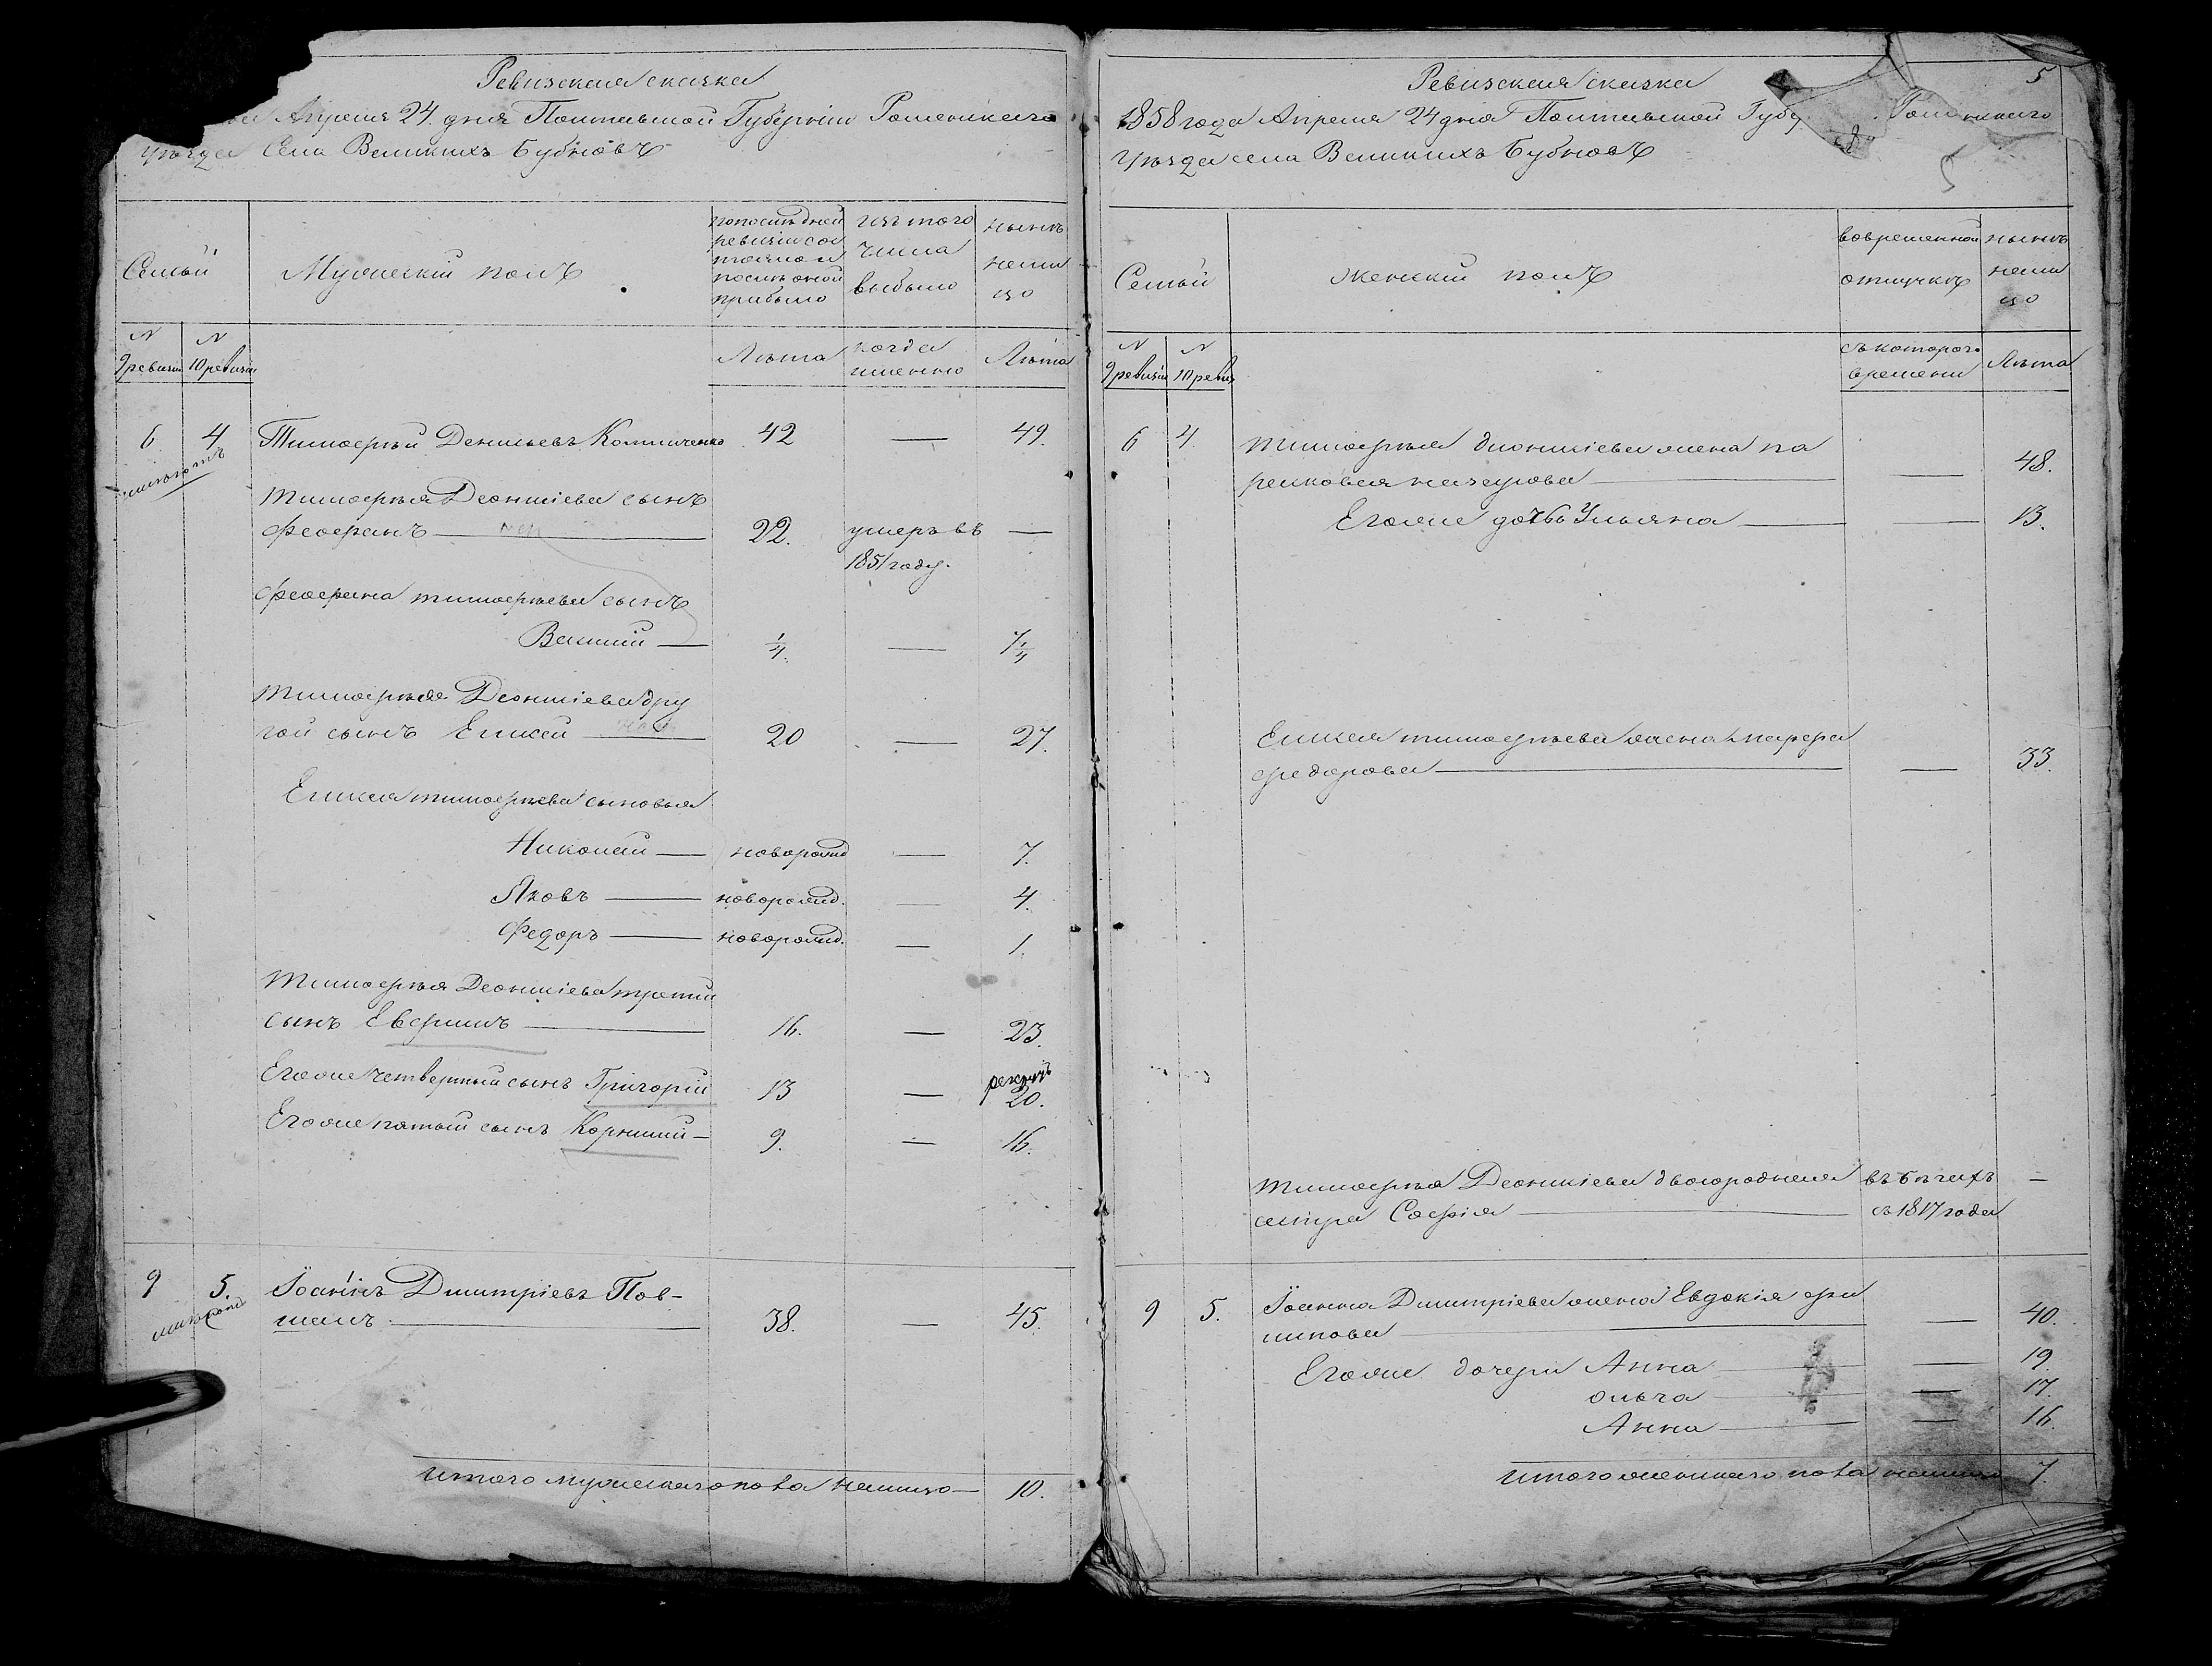 Ревизская сказка
Апреля 24. дня Полтавской Губерніи Роменскаго
уѣзда Села Великихъ Бубновъ
Семьи
Мужескій полъ
по послѣдней
ревизіи сос
тояло и
послѣ оной
прибыло
изъ того
числа
выбыло
нынѣ
нали
цо
N
9 ревизіи
N
10 ревизіи
Лѣта
когда
именно
Лѣта
6 4. Тимофѣй Деньевъ 42 — 49.
Тимофѣя Деонисіева сынъ
Феофанъ — 22. умеръ въ —
1851 году.
Феофана тимофѣева сынъ
1/4. — 7 1/4
Тимофѣя Деонисіева дру
гой сынъ Елисей — 20 — 27.
Елисея тимофѣева сыновья
Николай — новорожд — 7.
Яковъ — новорожд. — 4.
Федоръ — новорожд. — 1.
Тимофѣя Деонисіева третій
сынъ — 16. — 23.
Егоже четвертый сынъ Григорій 13 — 20.
Егоже пятый сынъ Корнилій — 9. — 16.
9 5. Іоаннъ Димитріевъ Пов-
38. — 45.
Итого мужескаго пола налицо — 10.
5
Ревизская сказка
1858 года Апреля 24 дня Полтавской Губе Роменскаго
уѣзда села Великихъ Бубновъ
5
Семьи
женскій полъ
во временной
отлучкѣ
нынѣ
нали
цо
N
9 ревизіи
N
10 ревиз
съ котораго
времени
Лѣта
6 4. Тимофѣя Дионисіева жена па
— 48.
Егоже дочь Ульяна — — 13.
Елисея тимофѣева жена
федорова — — 33.
Тимофѣя Деонисіева двоюродная въ бѣгахъ —
сестра Софія — съ 1817 года
9 5. Іоанна Димитріева жена Евдокія фи
липова — — 40.
Егоже дочери Анна — — 19.
ольга — — 17.
Анна — — 16.
Итого женскаго пола налицо 7.